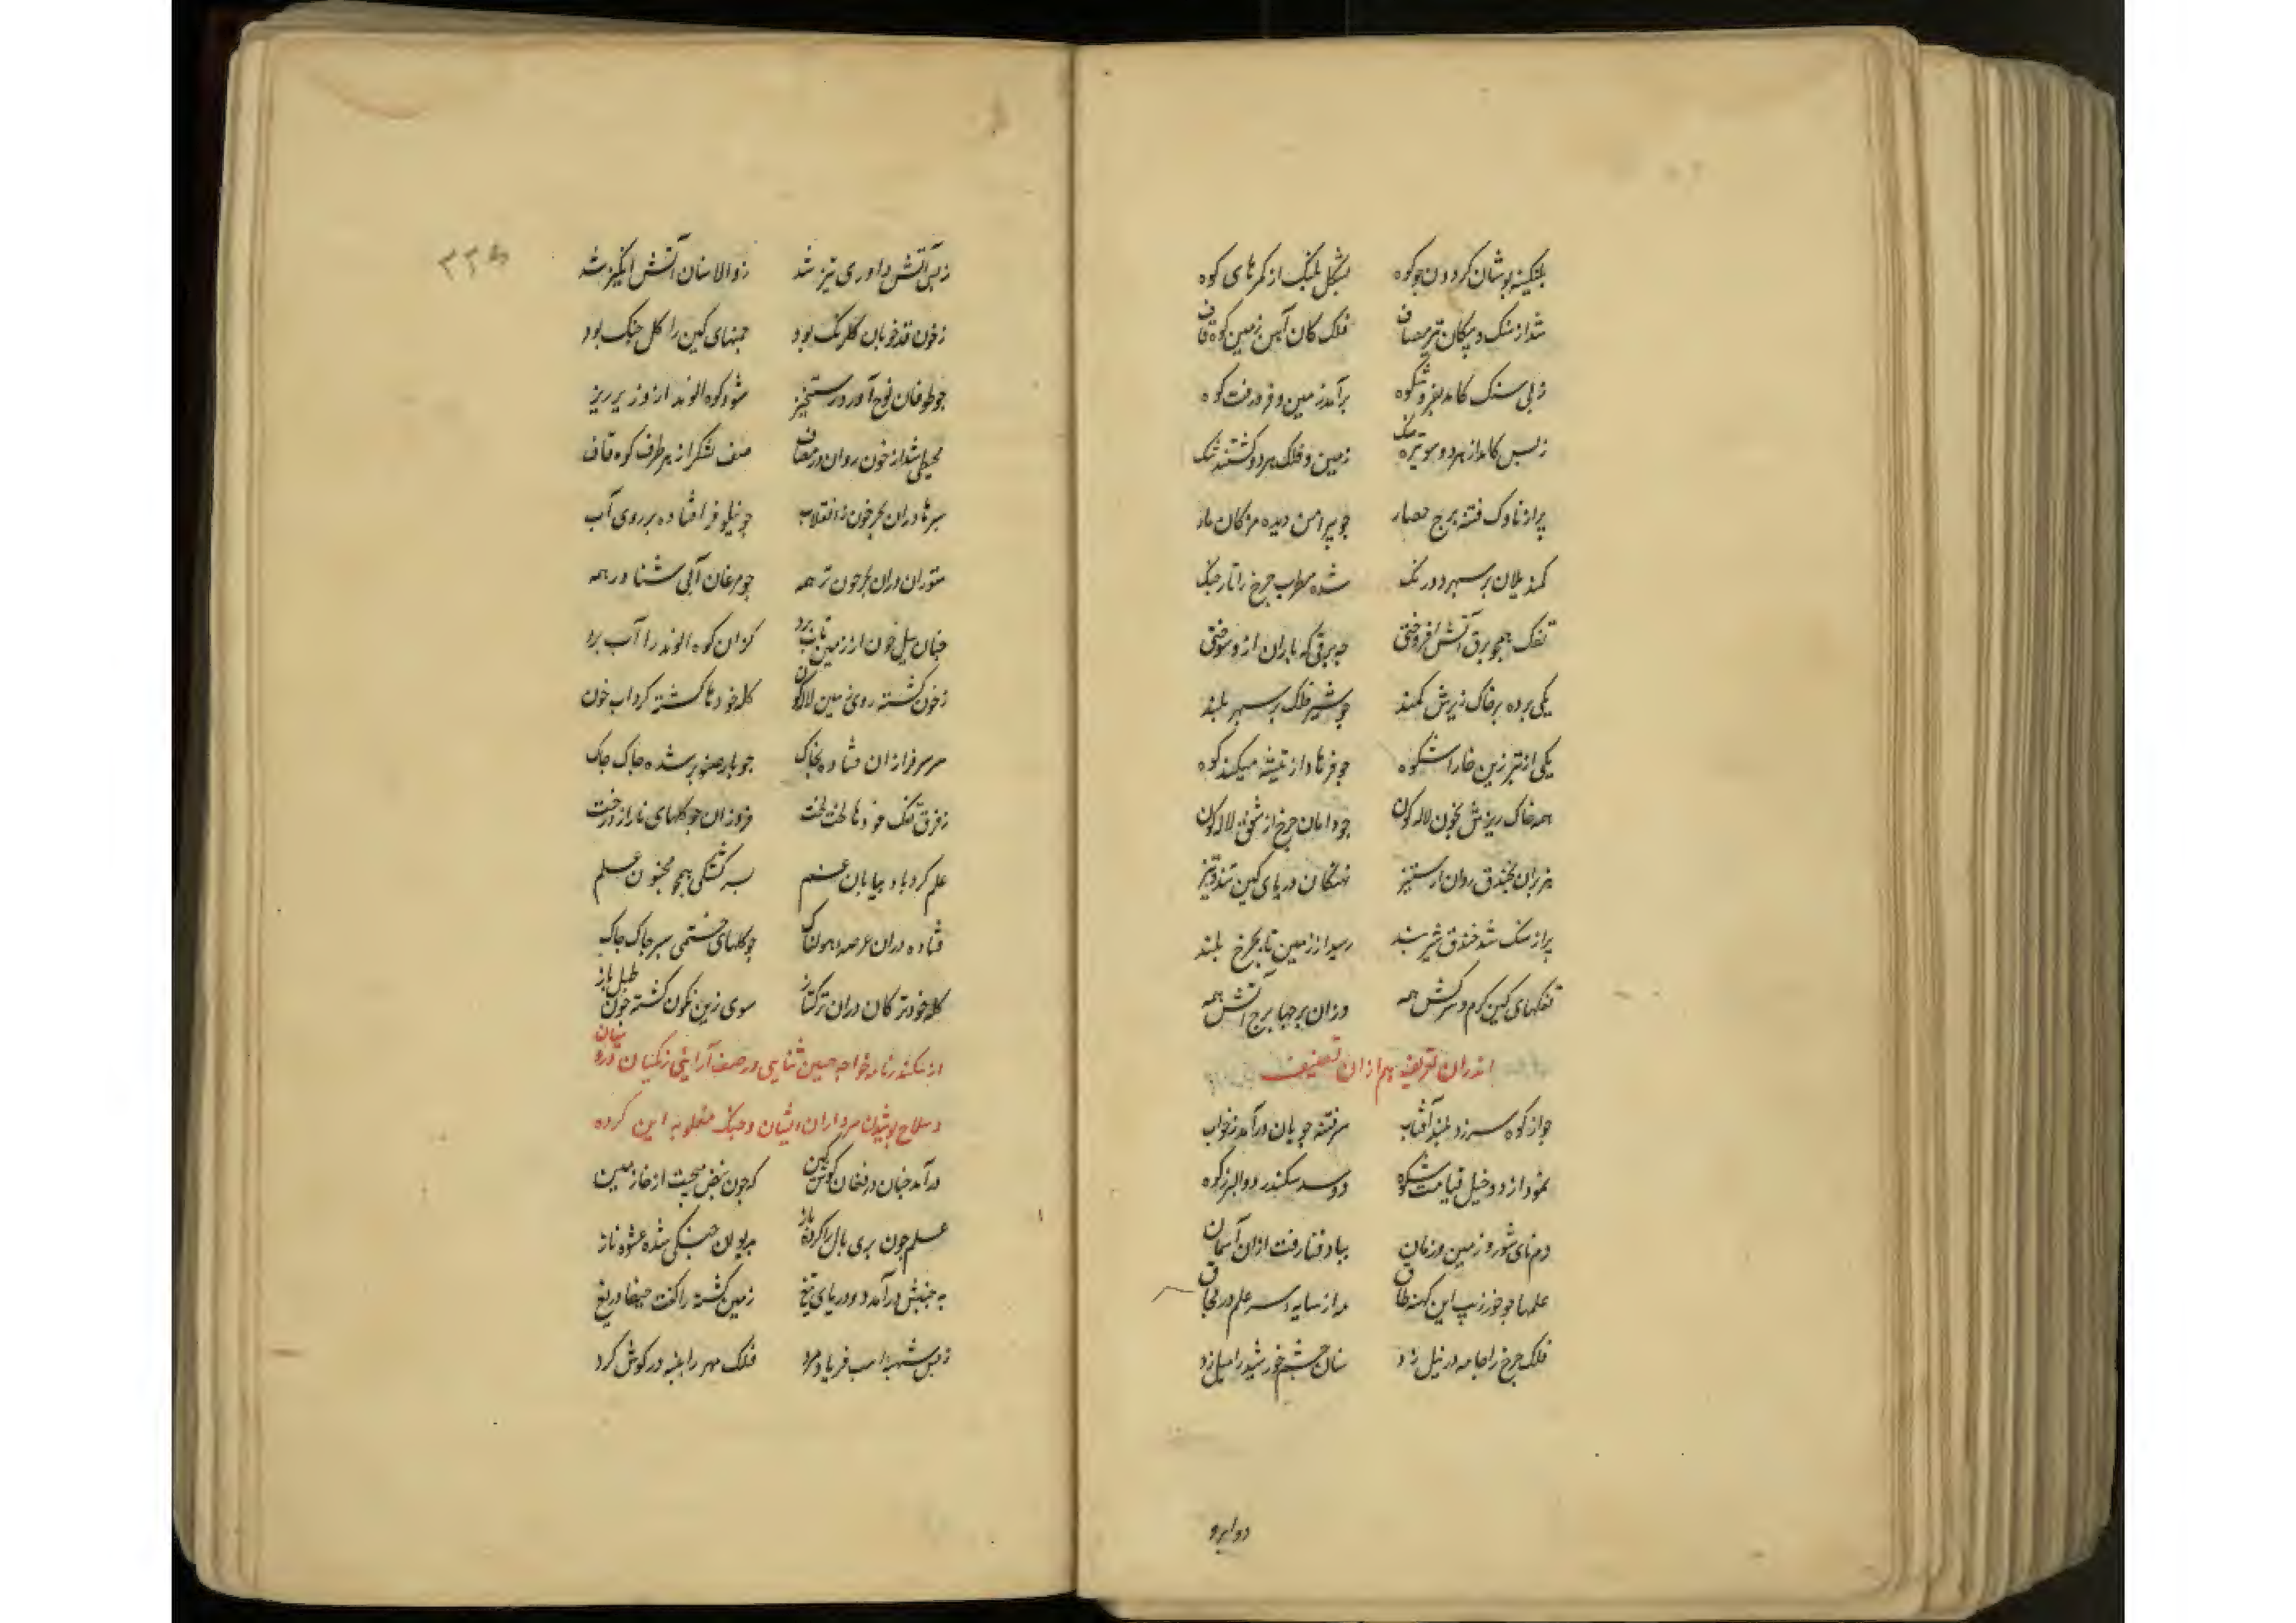 پلنگینه پوشان کردون جو کوه بشکل پلنگ از کمرهای کوه
شد از سنک و پیکان تیر مصاف فلک کان آهن زمین کوه قاف
ز بس سنک کامد بفر و شکوه برآمد زمین و فرو رفت کوه
ز بس کامد از هر دو سو تیر و سنک زمین و فلک هر دو کشتند تنک
پر از ناوک فتنه برج حصار جو پیرامن دیده مژکان مار
کمند یلان بر سپهر دو رنک شده مطرب جرخ را تار جنک
تفک همجو برق آتش افروختی جه برقی که باران ازو سوختی
یکی برده بر خاک ریزش کمند جو شیر فلک بر سپهر بلند
یکی از تبرزین خارا شکوه جو فرهاد از تیشه میکند کوه
همه خاک ریزش بخون لاله کون جو دامان جرخ از شفق لاله کون
هزبران بخندق روان از ستیز نهنکان دریای کین تند و تیز
پر از سنک شد خندق شیر بند رسید از زمین تا بجرخ بلند
تفکهای کین کرم و سرکش همه وزان برجها برج آتش همه
اندران تعریف هم ازان تصنیف
جو از کوه سر زد بلند آفتاب سر فتنه جویان درآمد ز خواب
نمود از دو خیل قیامت شکوه دو سد سکندر دو البرز کوه
دم نای شور و زمین و زمان بباد فنا رفت ازان آسمان
علمها جو خور زیب این کهنه طاق مه از سایه سر علم در محاق
فلک جرخ را جامه در نیل زد سنان جشم خورشید را میل زد
دو ابرو
۲۲۵
ز بس آتش داوری تیز شد ز والا سنان آتش انکیز شد
ز خون قد خوبان کلرنک بود جمنهای کین را کل جنک بود
جو طوفان نوح آورد رستخیز شود کوه الوند ازو ریز ریز
محیطی شد از خون روان در مصاف صف لشکر از هر طرف کوه قاف
سرها دران بحر خون ز انقلاب جو نیلوفر افتاده بر روی آب
ستوران دران بحر خون تر همه جو مرغان آبی شناور همه
جنان سیل خون از زمین تاب برد کزان کوه الوند را آب برد
ز خون کشته روی زمین لاله کون کله خودها کشته کرداب خون
سر سرفرازان فتاده بخاک جو بار صنوبر شده جاک جاک
ز فرق تفک خودها لخت لخت فروزان جو کلهای نار از درخت
علم کردباد بیابان غم بسرکشتکی همجو مجنون علم
فتاده دران عرصه هولناک جو کلهای خشتی سر جاک جاک
کله خود ترکان دران ترکتاز سوی زین نکون کشته جون طبل باز
از سکندرنامه خواجه حسین ثنایی در صف آرایی زنکیان و روسیان
و سلاح پوشیدن سرداران ایشان و جنک مغلوبه این کرده
درآمد جنان در فغان کوس کین که جون نبض میجست از جا زمین
علم جون پری بال را کرده باز بدیوان جنکی شده عشوه ناز
به جنبش درآمد دو دریای تیغ زمین کشته را کفت حیفا دریغ
ز بس شیهه اسب فریاد مرد فلک مهر را پنبه در کوش کرد